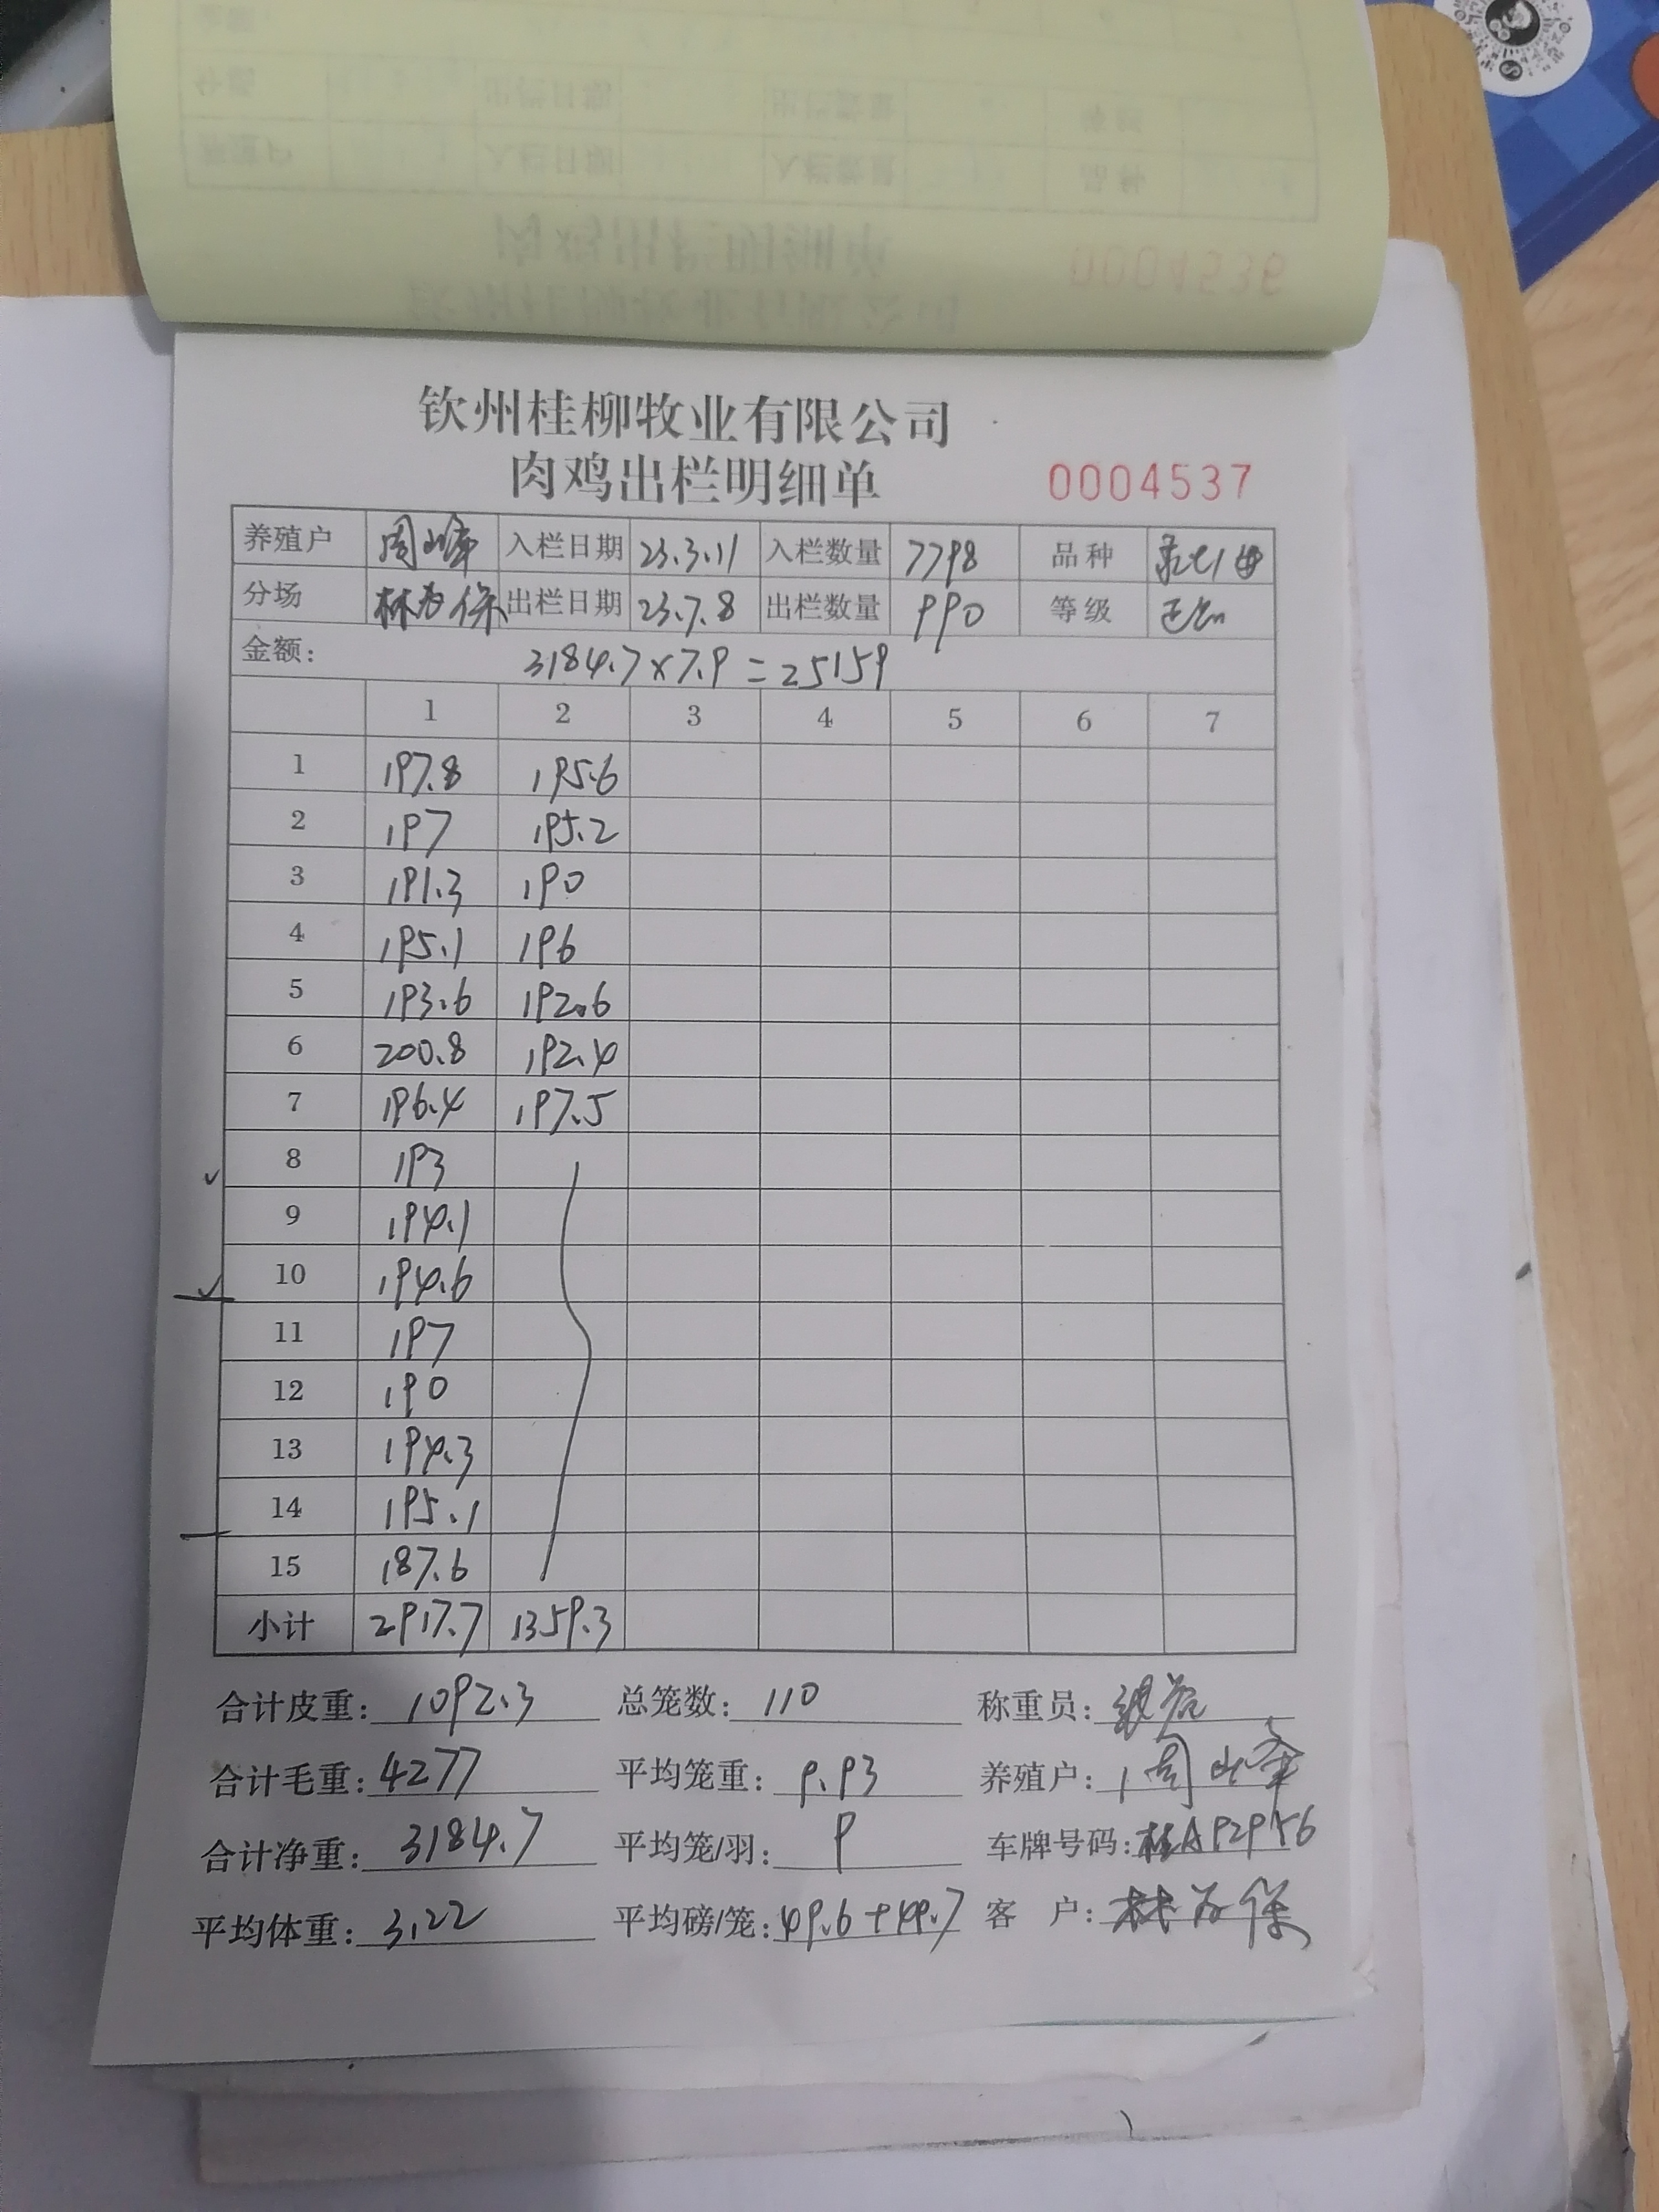 钦州桂柳牧业有限公司
肉鸡出栏明细单 0004537
养殖户 周山峰 入栏日期 23.3.11 入栏数量 7798 品种
分场 林为保 出栏日期 23.7.8 出栏数量 990 等级
金额: 3184.7×7.9=25159
1 2 3 4 5 6 7
1 197.8 195.6
2 197 195.2
3 191.3 190
4 195.1 196
5 193.6 192.6
6 200.8 192.4
7 196.4 197.5
8 193
9 194.1
10 194.6
11 197
12 190
13 194.3
14 195.1
15 187.6
小计 2917.7 1359.3
合计皮重: 1092.3 总笼数: 110 称重员:
合计毛重: 4277 平均笼重: 9.93 养殖户: 周山峰
合计净重: 3184.7 平均笼/羽: 9 车牌号码: 桂A92956
平均体重: 3.22 平均磅/笼: 49.6+49.7 客户: 林为保